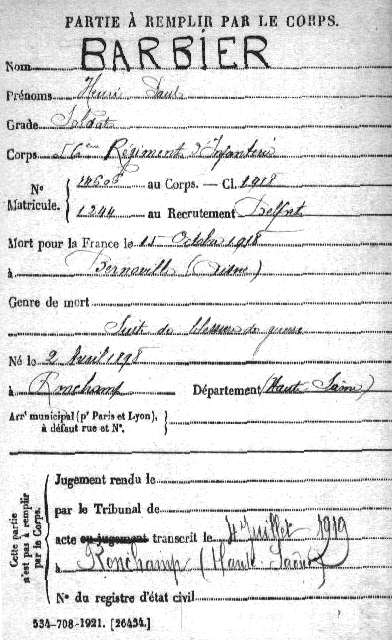 PARTIE À REMPLIR PAR LE CORPS.
Nom BARBIER
Prénoms Henri Paul
Grade Soldat
Corps 56ème Régiment d'Infanterie
N° Matricule. 14608 au Corps. — Cl. 1918
1244 au Recrutement Belfort
Mort pour la France le 15 Octobre 1918
à Bernoville (Aisne)
Genre de mort
Suite de blessures de guerre
Né le 2 Avril 1898
à Ronchamp Département (Haute Saône)
Arrt municipal (pr Paris et Lyon), à défaut rue et N°.
Cette partie n'est pas à remplir par le Corps.
Jugement rendu le
par le Tribunal de
acte ou jugement transcrit le 4 Juillet 1919
à Ronchamp (Haute Saône)
N° du registre d'état civil
534-708-1921. [26434.]